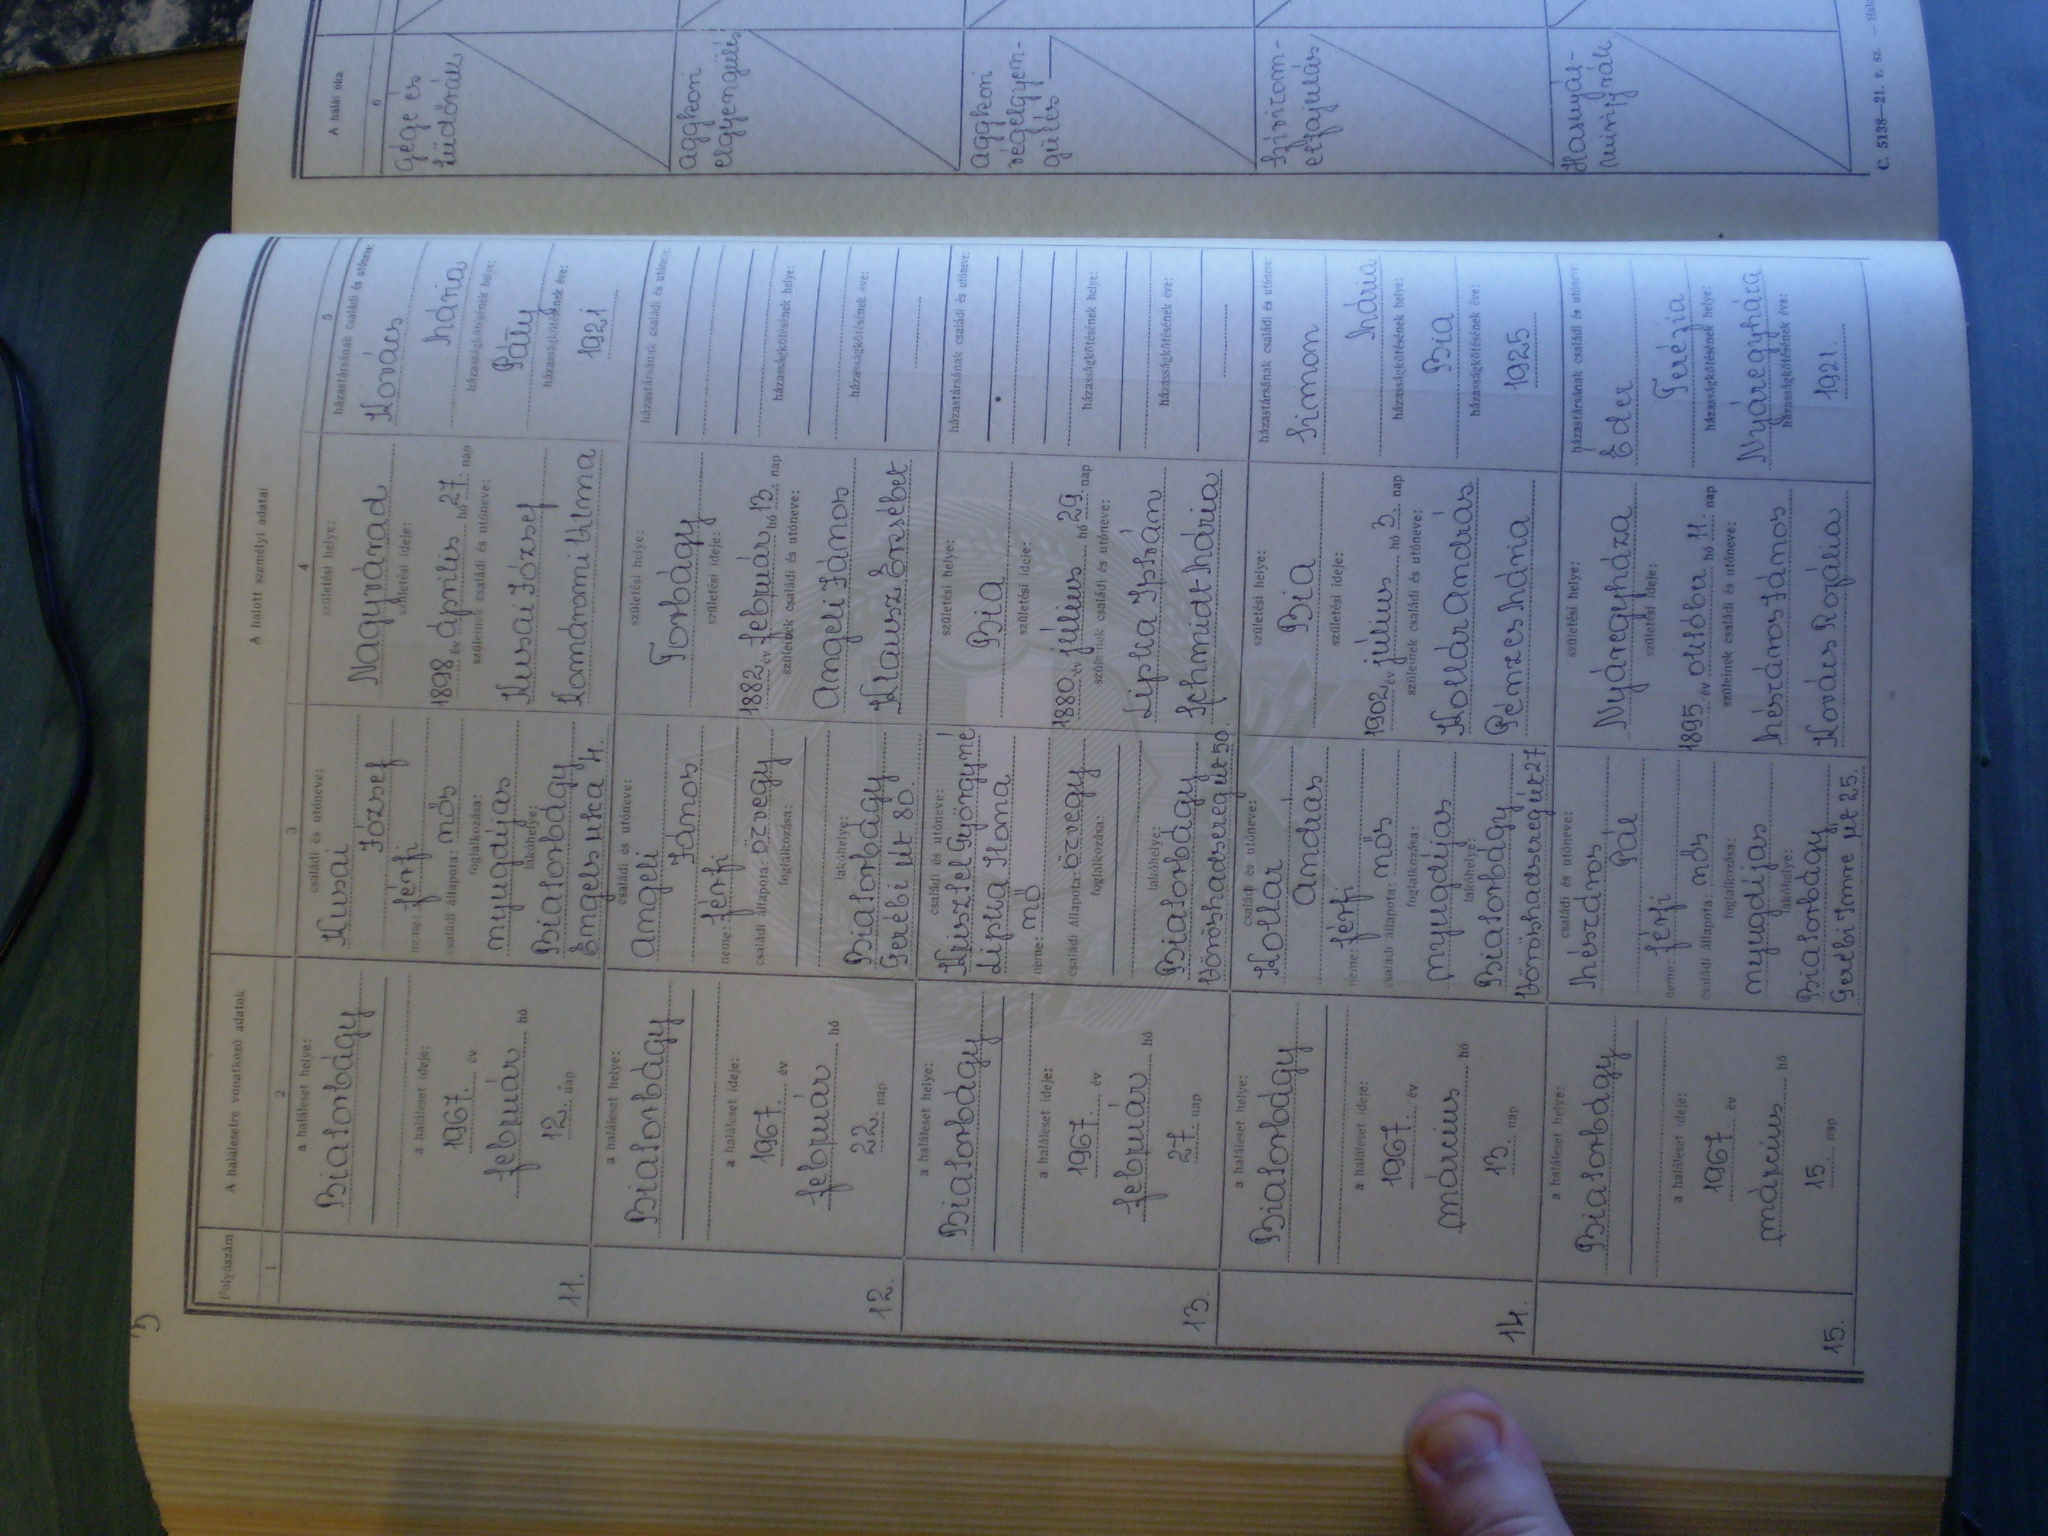 3
Folyószám
A halálesetre vonatkozó adatok
A halott személyi adatai
A halál oka
1
2
3
4
5
6
a haláleset helye:
Biatorbágy
a haláleset ideje:
1967 év
február hó
12. nap
11.
családi és utóneve:
Kusai
József
neme: férfi
családi állapota: nős
foglalkozása:
nyugdíjas
lakóhelye:
Biatorbágy
Engels uka 4.
születési helye:
Nagyvárad
születési ideje:
1898 év április hó 27. nap
szüleinek családi és utóneve:
Kusai József
Komáromi
házastársának családi és utóneve:
Kovács
Mária
házasságkötésének helye:
Pály
házasságkötésének éve:
1921
Gége és
tüdőrák
a haláleset helye:
Biatorbágy
a haláleset ideje:
1967. év
február hó
22. nap
12.
családi és utóneve:
Angeli
János
neme: férfi
családi állapota: özvegy
foglalkozása:
lakóhelye:
Biatorbágy
Gerébi út 80.
születési helye:
Torbágy
születési ideje:
1882 év február hó 13. nap
szüleinek családi és utóneve:
Angeli János
Krausz Erzsébet
házastársának családi és utóneve:
házasságkötésének helye:
házasságkötésének éve:
aggkori
elgyengülés
a haláleset helye:
Biatorbágy
a haláleset ideje:
1967. év
február hó
27. nap
13.
családi és utóneve:
Krisztel Györgyné
Lipka Ilona
neme: nő
családi állapota: özvegy
foglalkozása:
lakóhelye:
Biatorbágy
Vöröshadsereg út 50
születési helye:
Bia
születési ideje:
1880 év július hó 29. nap
szüleinek családi és utóneve:
Lipka István
Schmidt Mária
házastársának családi és utóneve:
házasságkötésének helye:
házasságkötésének éve:
aggkori
végelgyen-
gülés
a haláleset helye:
Biatorbágy
a haláleset ideje:
1967. év
március hó
13. nap
14.
családi és utóneve:
Kollár
András
neme: férfi
családi állapota: nős
foglalkozása:
nyugdíjas
lakóhelye:
Biatorbágy
Vöröshadsereg út 27
születési helye:
Bia
születési ideje:
1902 év július hó 3. nap
szüleinek családi és utóneve:
Kollár András
Pénzes Mária
házastársának családi és utóneve:
Simon
Mária
házasságkötésének helye:
Bia
házasságkötésének éve:
1925
Szívizom-
elfajulás
a haláleset helye:
Biatorbágy
a haláleset ideje:
1967 év
március hó
15 nap
15.
családi és utóneve:
Mészáros
Pál
neme: férfi
családi állapota: nős
foglalkozása:
nyugdíjas
lakóhelye:
Biatorbágy
Gerébi Imre út 25.
születési helye:
Nyáregyháza
születési ideje:
1895 év október hó 11. nap
szüleinek családi és utóneve:
Mészáros János
Kovács Rozália
házastársának családi és utóneve:
Éder
Terézia
házasságkötésének helye:
Nyáregyháza
házasságkötésének éve:
1921.
Hasnyál-
mirigyrák
C. 5138—21. r. sz.